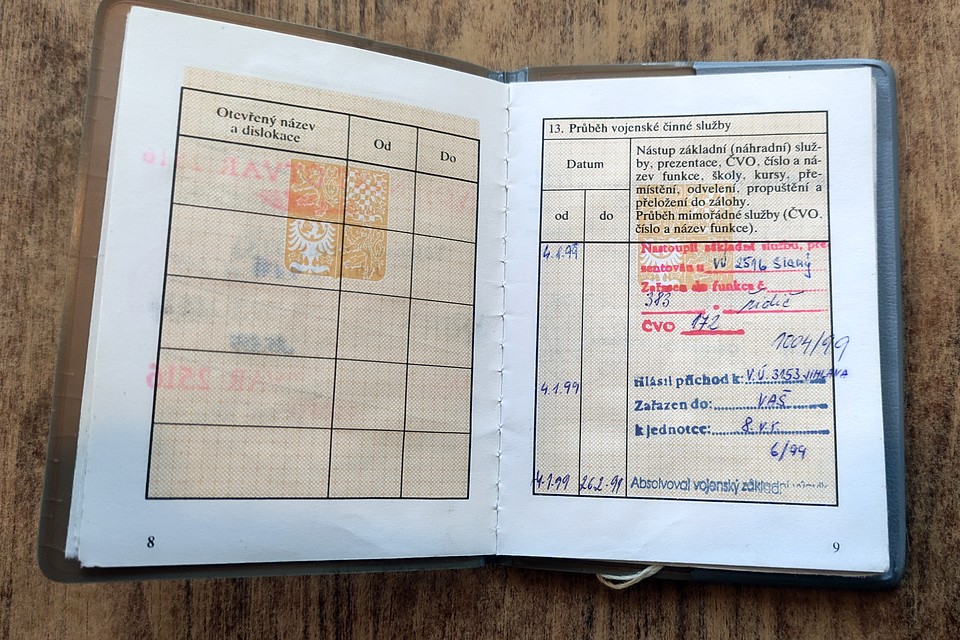 Otevřený název
a dislokace
Od
Do
8
13. Průběh vojenské činné služby
Datum
od
do
Nástup základní (náhradní) služ-
by, prezentace, ČVO, číslo a ná-
zev funkce, školy, kursy, pře-
místění, odvelení, propuštění a
přeložení do zálohy.
Průběh mimořádné služby (ČVO,
číslo a název funkce).
4.1.99
Nastoupil základní službu, pre-
sentován u VÚ 2516 Slaný
Zařazen do funkce č.
383 řidič
ČVO 172
1004/99
4.1.99
Hlásil příchod k: V.Ú. 3153 JIHLAVA
Zařazen do: VAŠ
k jednotce: 8. v.r.
6/99
4.1.99 26.2.99
Absolvoval vojenský základní
9